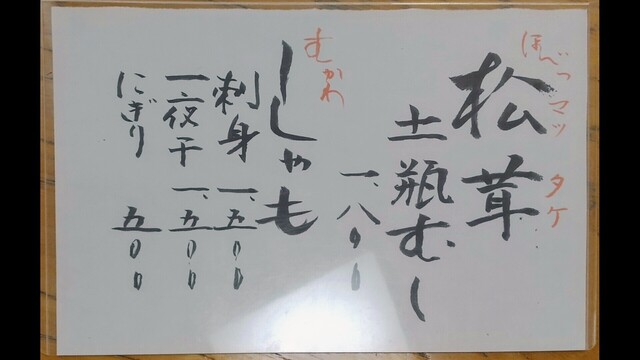 ほべつ マツ タケ
松茸
土瓶むし
一、八〇〇
むかわ
ししゃも
刺身 一、五〇〇
一夜干 一、五〇〇
にぎり 五〇〇